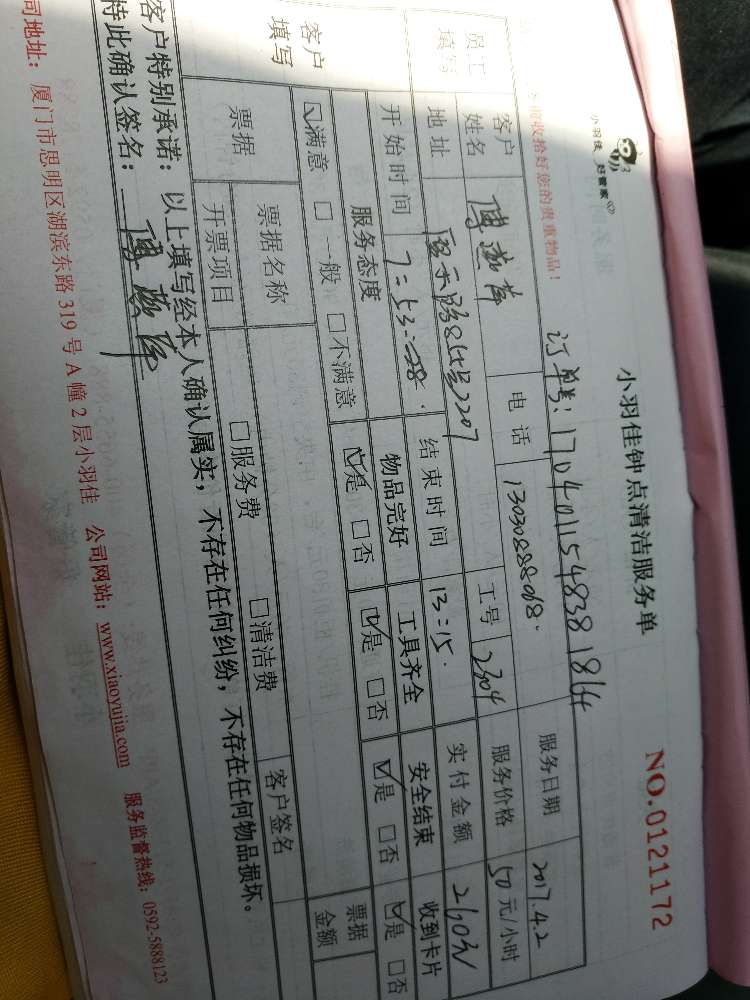 小羽佳 好管家
小羽佳钟点清洁服务单
NO.0121172
前收拾好您的贵重物品！
订单号：
员工填写
客户姓名
电话 13030888068.
服务日期 2017.4.2
地址
工号 2304
服务价格 50元/小时
开始时间
结束时间 13:15.
实付金额 260元
客户填写
服务态度 物品完好 工具齐全 安全结束 收到卡片
☑满意 □一般 □不满意 ☑是 □否 ☑是 □否 ☑是 □否 ☑是 □否
票据
票据名称 □服务费 □清洁费
票据金额
开票项目
客户签名
客户特别承诺：以上填写经本人确认属实，不存在任何纠纷，不存在任何物品损坏。
特此确认签名：
司地址：厦门市思明区湖滨东路319号A幢2层小羽佳 公司网站：www.xiaoyujia.com 服务监督热线：0592-5888123